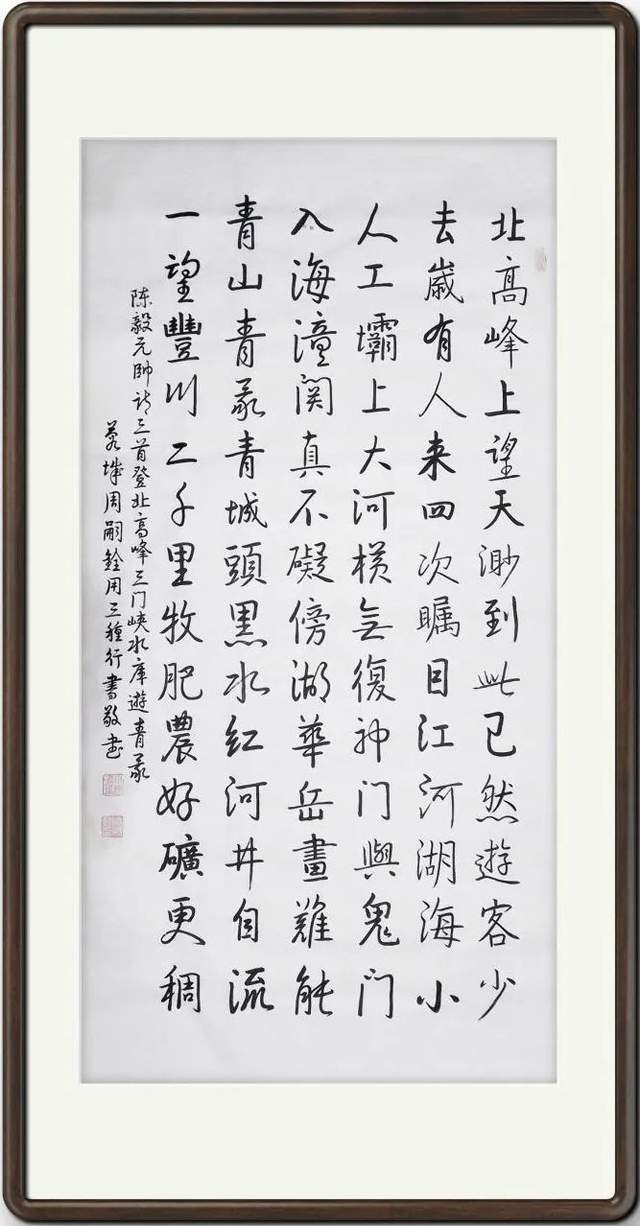 北高峰上望天渺到此已然遊客少
去歲有人来四次瞩目江河湖海小
人工壩上大河横無復神门與鬼门
入海潼関真不礙傍湖華岳畫難能
青山青冡青城頭黑水红河井自流
一望豐川二千里牧肥農好礦更稠
陈毅元帥诗三首登北高峰三门峡水库遊青冡
周嗣銓用三種行書敬书